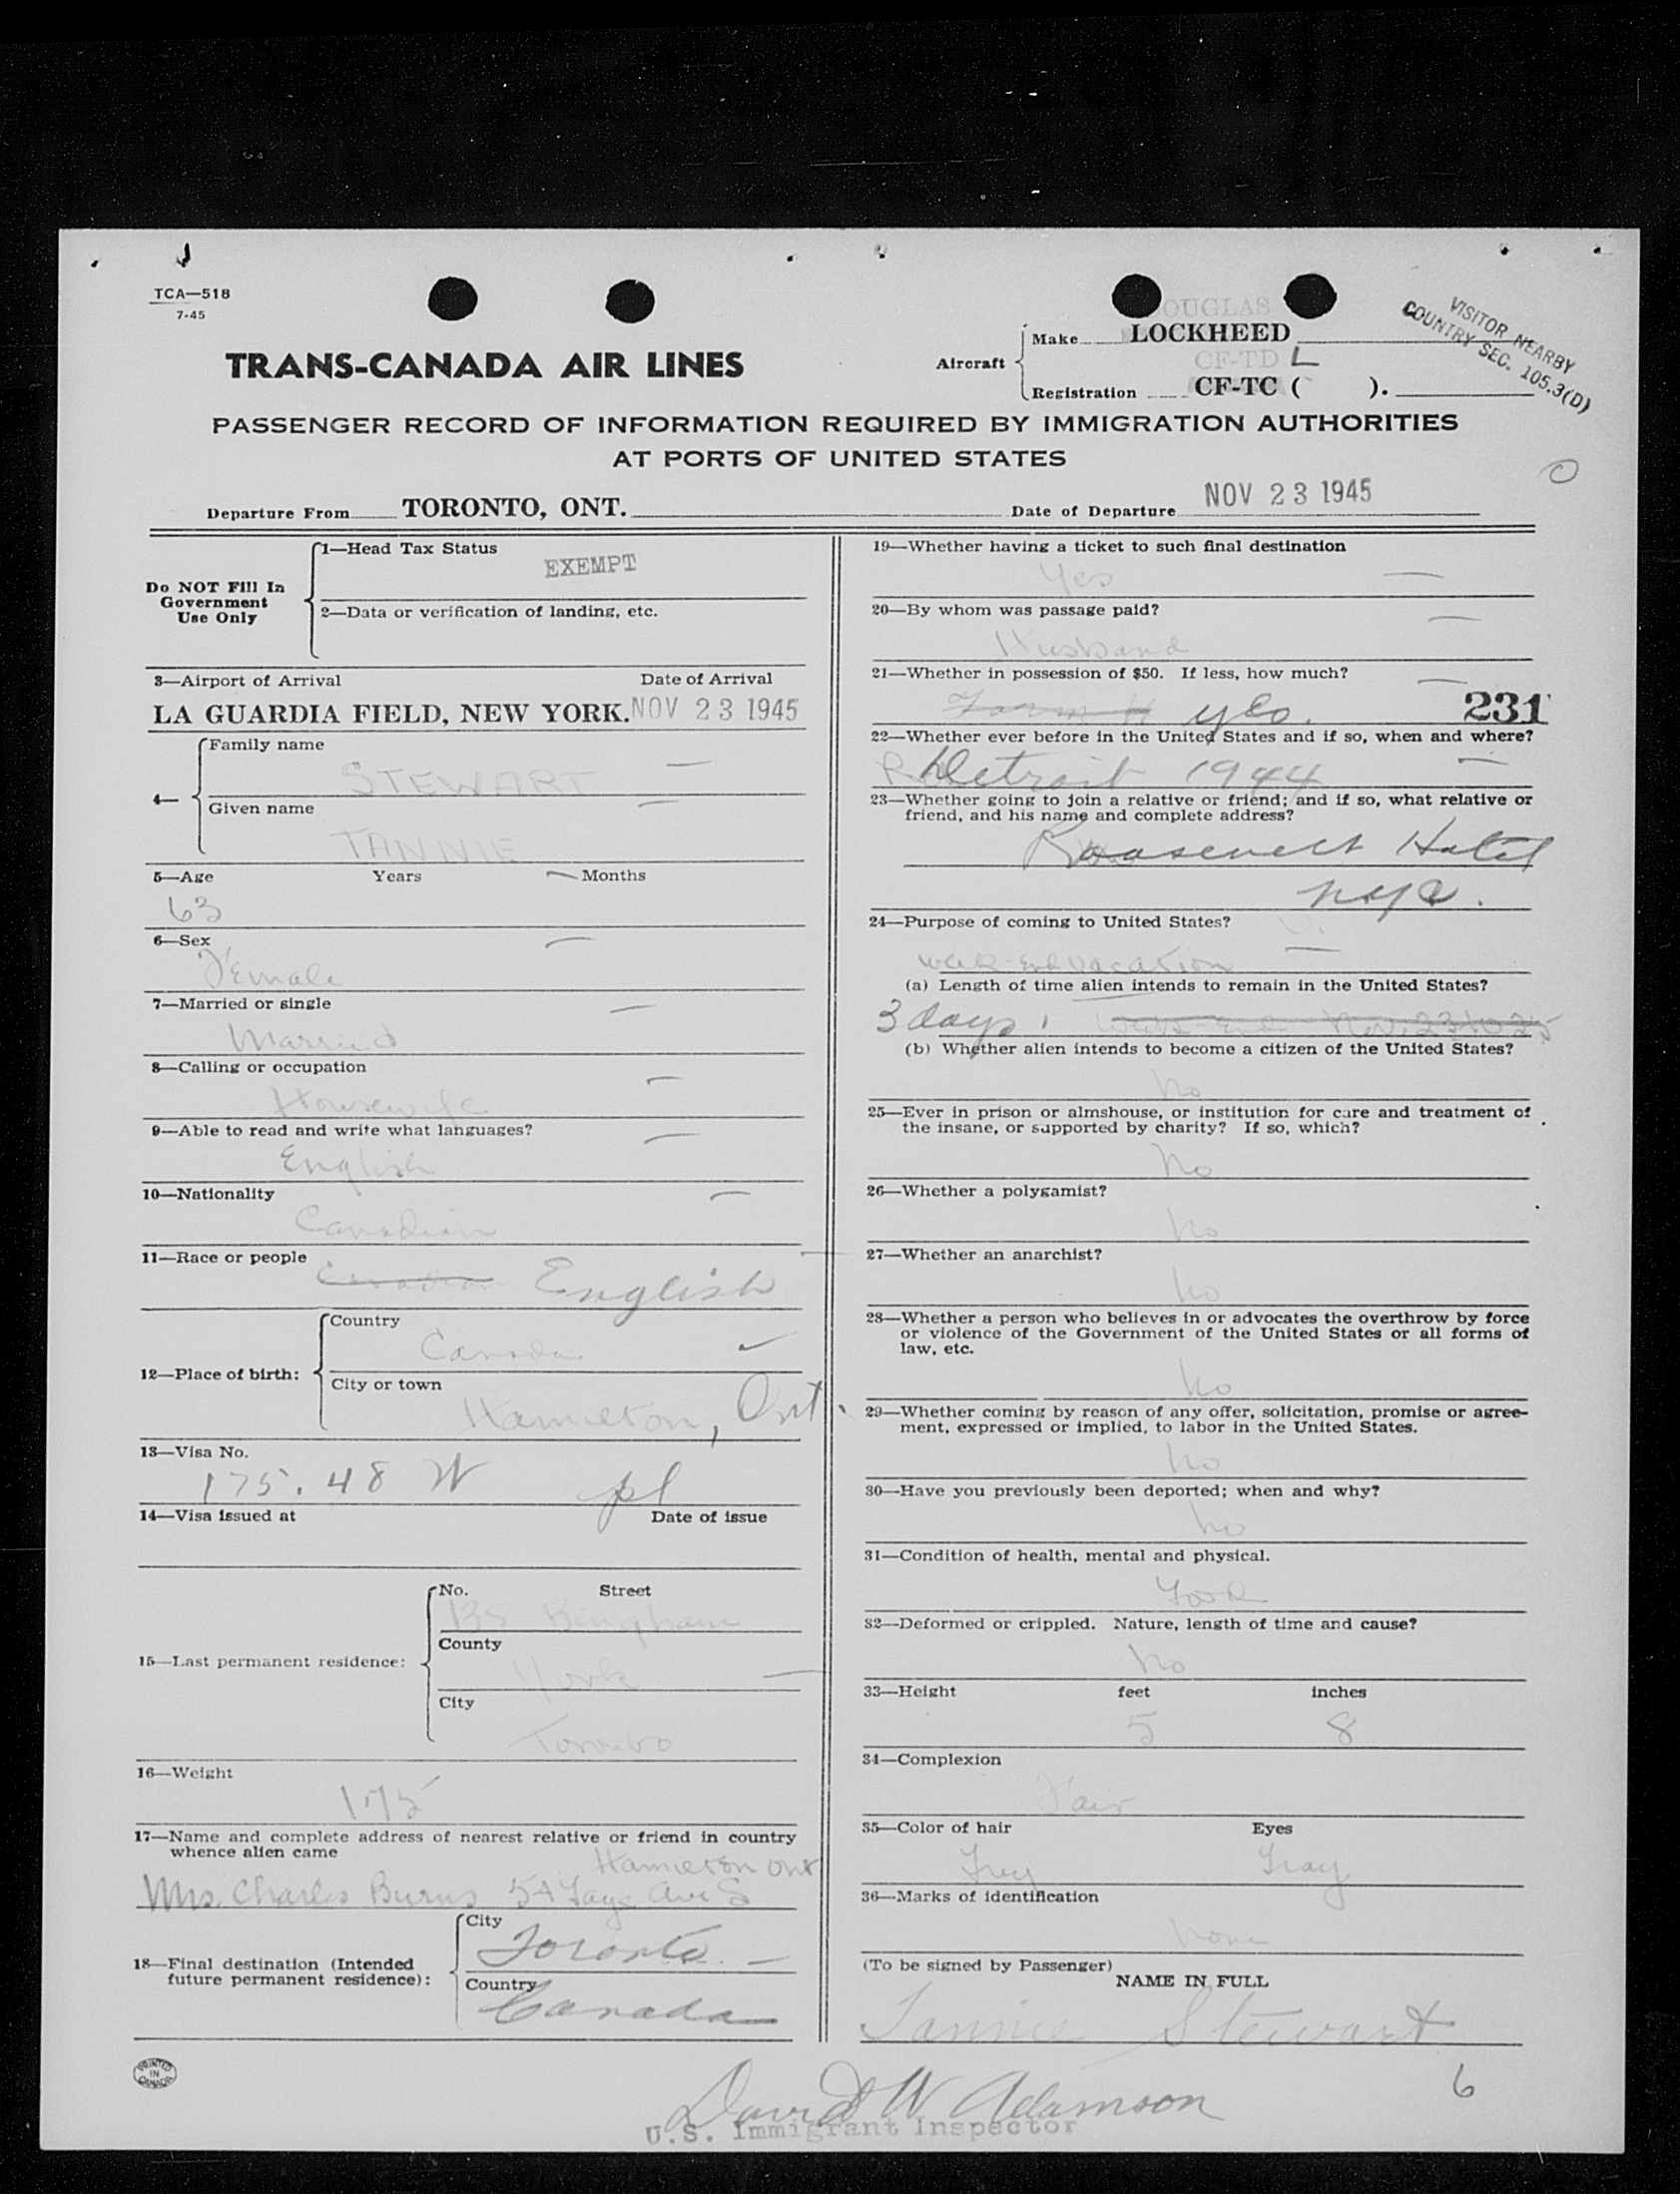 TCA—518
7-45
DOUGLAS
Make LOCKHEED
VISITOR NEARBY
COUNTRY SEC. 105.3(D)
TRANS-CANADA AIR LINES
Aircraft
CF-TD L
Registration CF-TC ( ).
PASSENGER RECORD OF INFORMATION REQUIRED BY IMMIGRATION AUTHORITIES
AT PORTS OF UNITED STATES
Departure From TORONTO, ONT. Date of Departure NOV 23 1945
Do NOT Fill In
Government
Use Only
1—Head Tax Status
EXEMPT
2—Data or verification of landing, etc.
3—Airport of Arrival Date of Arrival
LA GUARDIA FIELD, NEW YORK. NOV 23 1945
4—
Family name
STEWART
Given name
TANNIE
5—Age Years Months
63
6—Sex
Female
7—Married or single
Married
8—Calling or occupation
Housewife
9—Able to read and write what languages?
English
10—Nationality
Canadian
11—Race or people
Canadian English
12—Place of birth:
Country
Canada
City or town
Hamilton, Ont.
13—Visa No.
175.48 W pl
14—Visa issued at Date of issue
15—Last permanent residence:
No. Street
135 Bingham
County
York
City
Toronto
16—Weight
175
17—Name and complete address of nearest relative or friend in country
whence alien came
Hamilton Ont
Mrs. Charles Burns 54 Gage Ave S
18—Final destination (Intended
future permanent residence):
City
Toronto
Country
Canada
19—Whether having a ticket to such final destination
Yes
20—By whom was passage paid?
Husband
21—Whether in possession of $50. If less, how much?
Form H yes. 231
22—Whether ever before in the United States and if so, when and where?
Detroit 1944
23—Whether going to join a relative or friend; and if so, what relative or
friend, and his name and complete address?
Roosevelt Hotel
nyc.
24—Purpose of coming to United States?
week-end vacation
(a) Length of time alien intends to remain in the United States?
3 days. Week-End Nov. 23 to 25
(b) Whether alien intends to become a citizen of the United States?
No
25—Ever in prison or almshouse, or institution for care and treatment of
the insane, or supported by charity? If so, which?
No
26—Whether a polygamist?
No
27—Whether an anarchist?
No
28—Whether a person who believes in or advocates the overthrow by force
or violence of the Government of the United States or all forms of
law, etc.
No
29—Whether coming by reason of any offer, solicitation, promise or agree-
ment, expressed or implied, to labor in the United States.
No
30—Have you previously been deported; when and why?
No
31—Condition of health, mental and physical.
Good
32—Deformed or crippled. Nature, length of time and cause?
No
33—Height feet inches
5 8
34—Complexion
Fair
35—Color of hair Eyes
Grey Gray
36—Marks of identification
None
(To be signed by Passenger)
NAME IN FULL
Tannie Stewart
PRINTED
IN
CANADA
6
David W Adamson
U.S. Immigrant Inspector